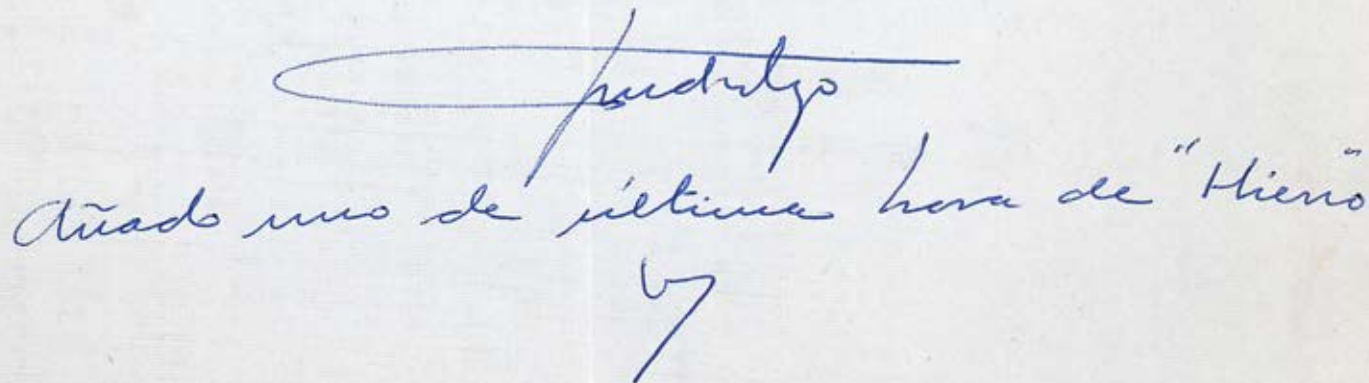 Añado uno de última hora de "Hierro"